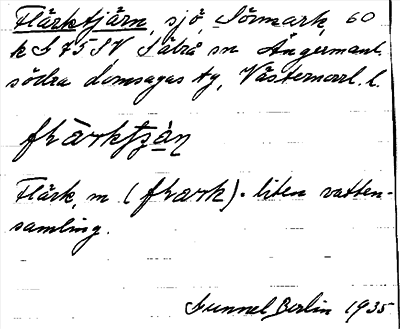 Flärktjärn, sjö, Sörmark, 60
k S 75 SV, Säbrå sn Ångermanl.
södra domsagas tg, Västernorrl. l.
flärktjä̀ṇ
Flärk, m (flærk) = liten vatten-
samling.
Gunnel Berlin 1935